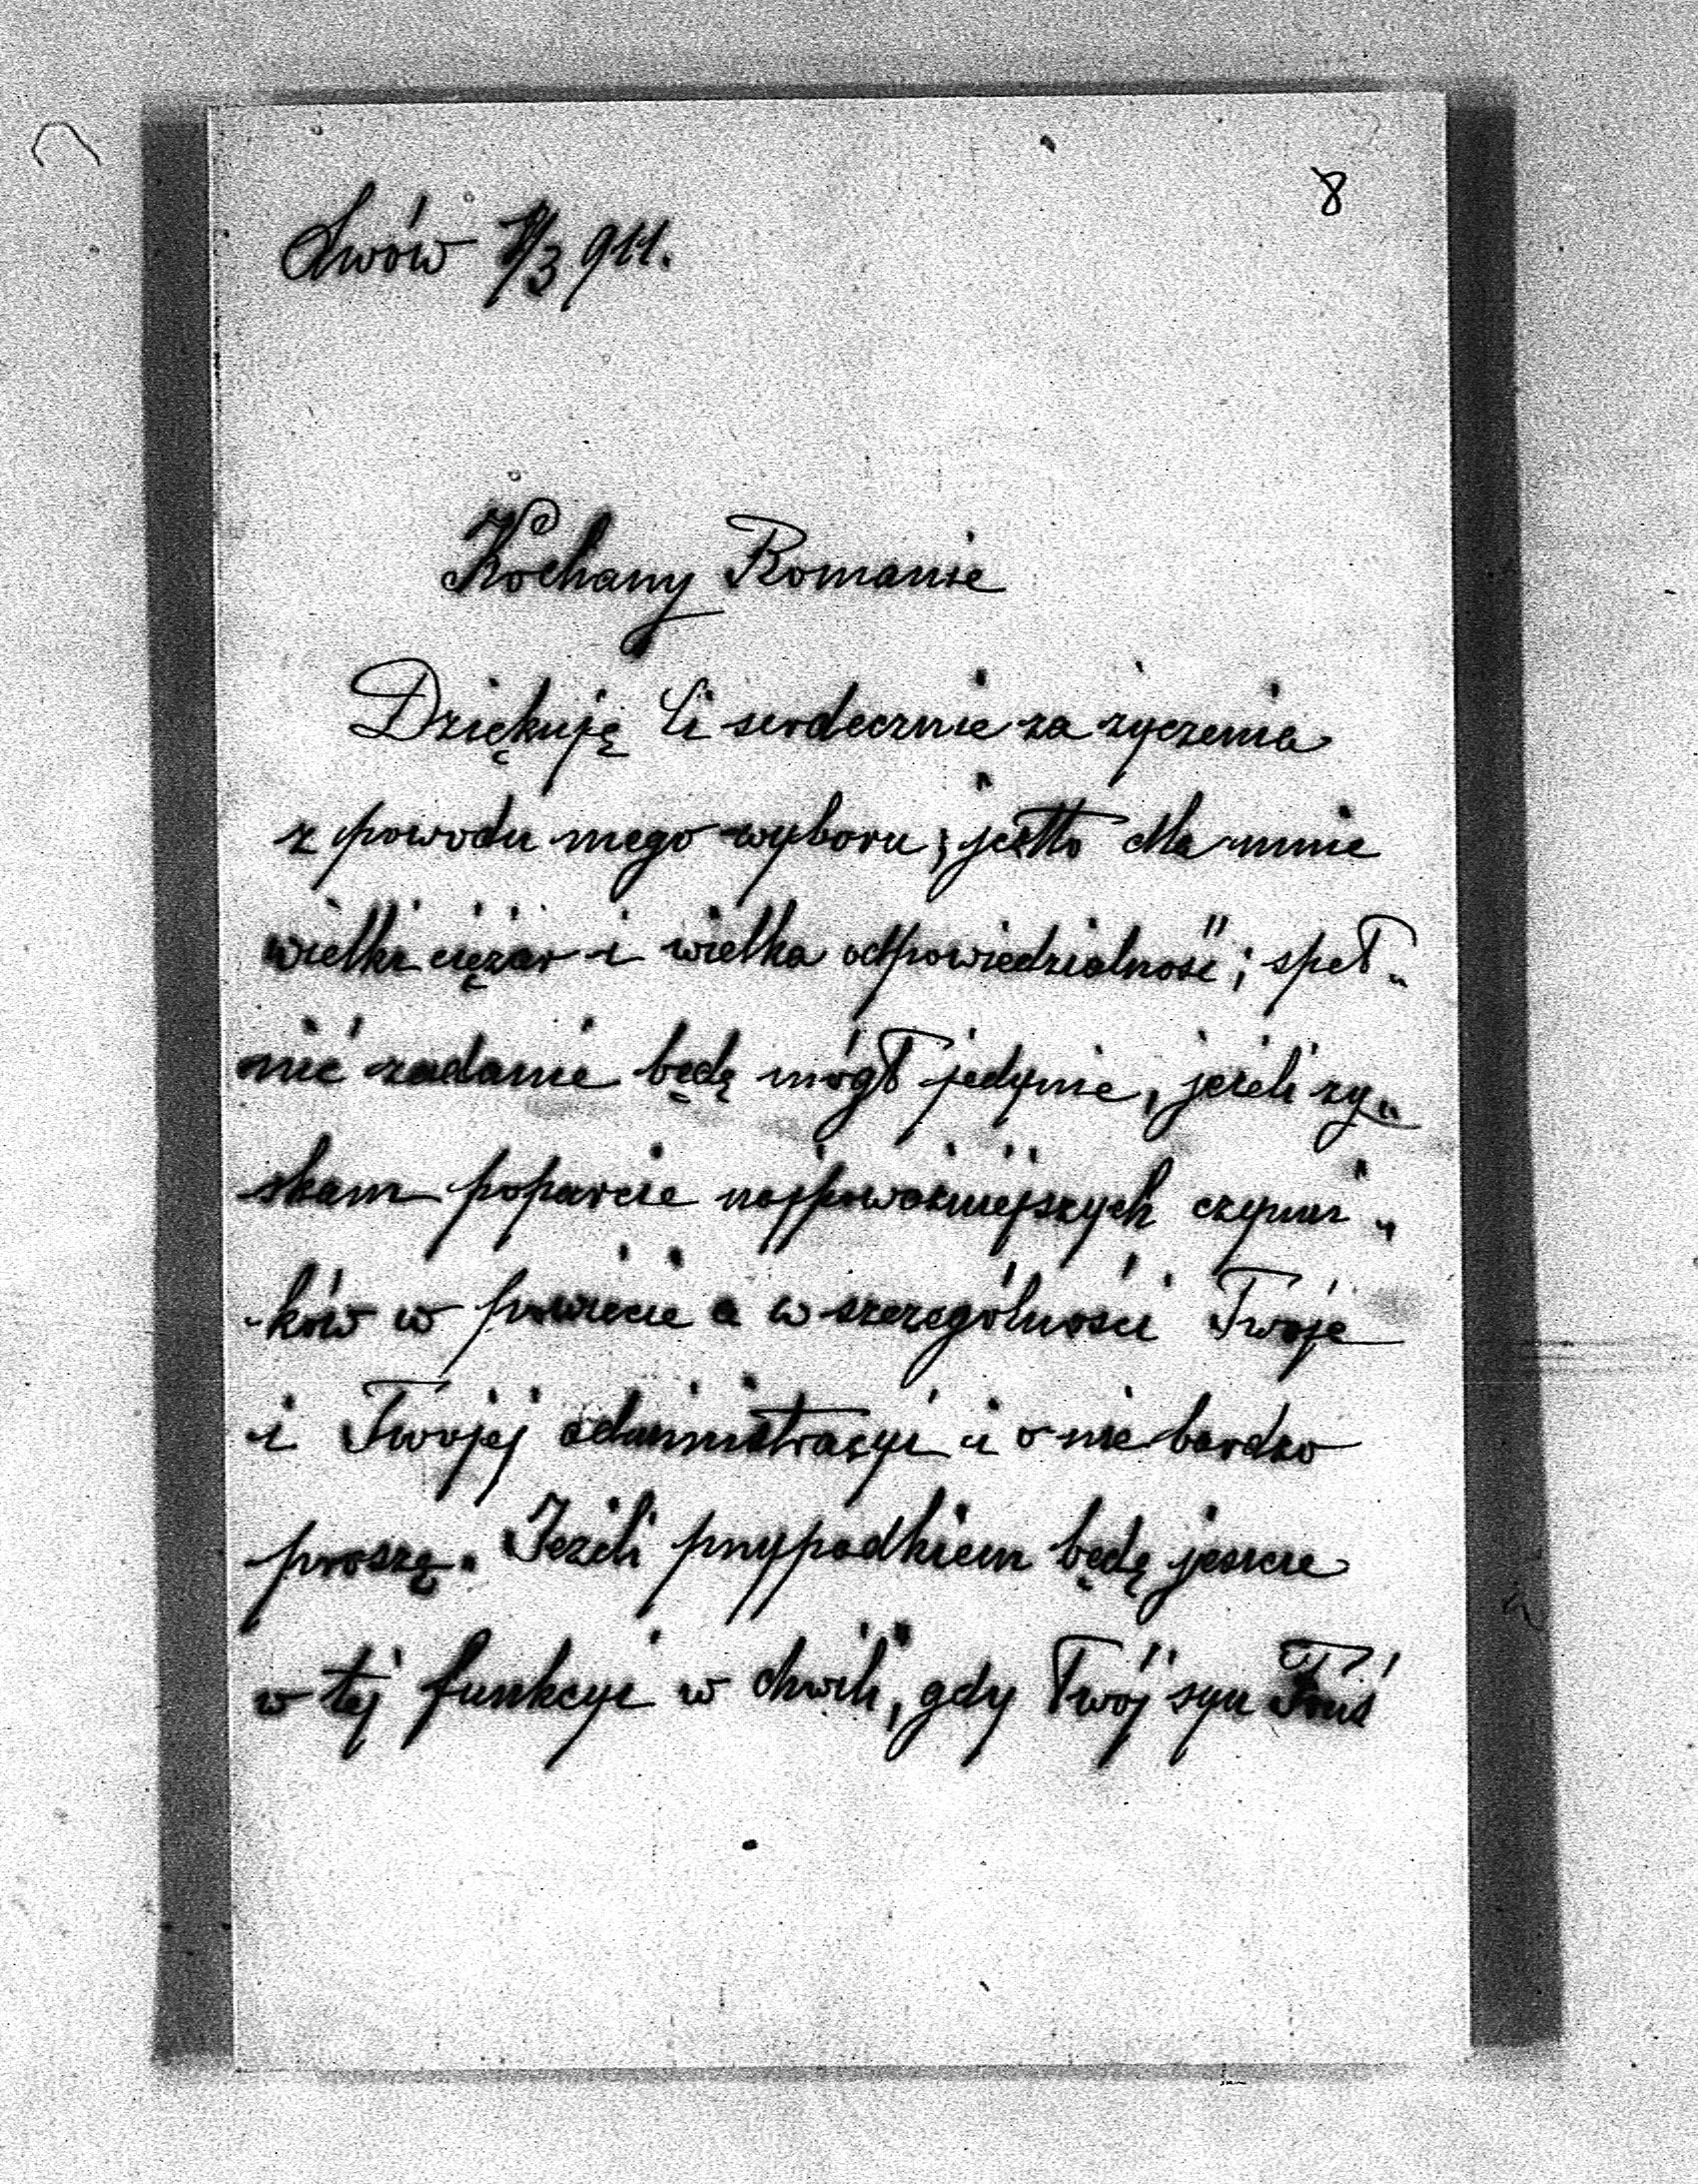 8
Lwów /3 911.
Kochany Romanie
Dziękuję Ci serdecznie za życzenia
z powodu mego wyboru; jestto dla mnie
wielki ciężar i wielka odpowiedzialność; speł„
nić zadanie będę mógł jedynie, jeżeli zy„
skam poparcie najpoważniejszych czynni„
ków w powiecie a w szczególności Twoje
i Twojej administracyi i o nie bardzo
proszę. Jeżeli przypadkiem będę jeszcze
w tej funkcyi w chwili, gdy Twój syn